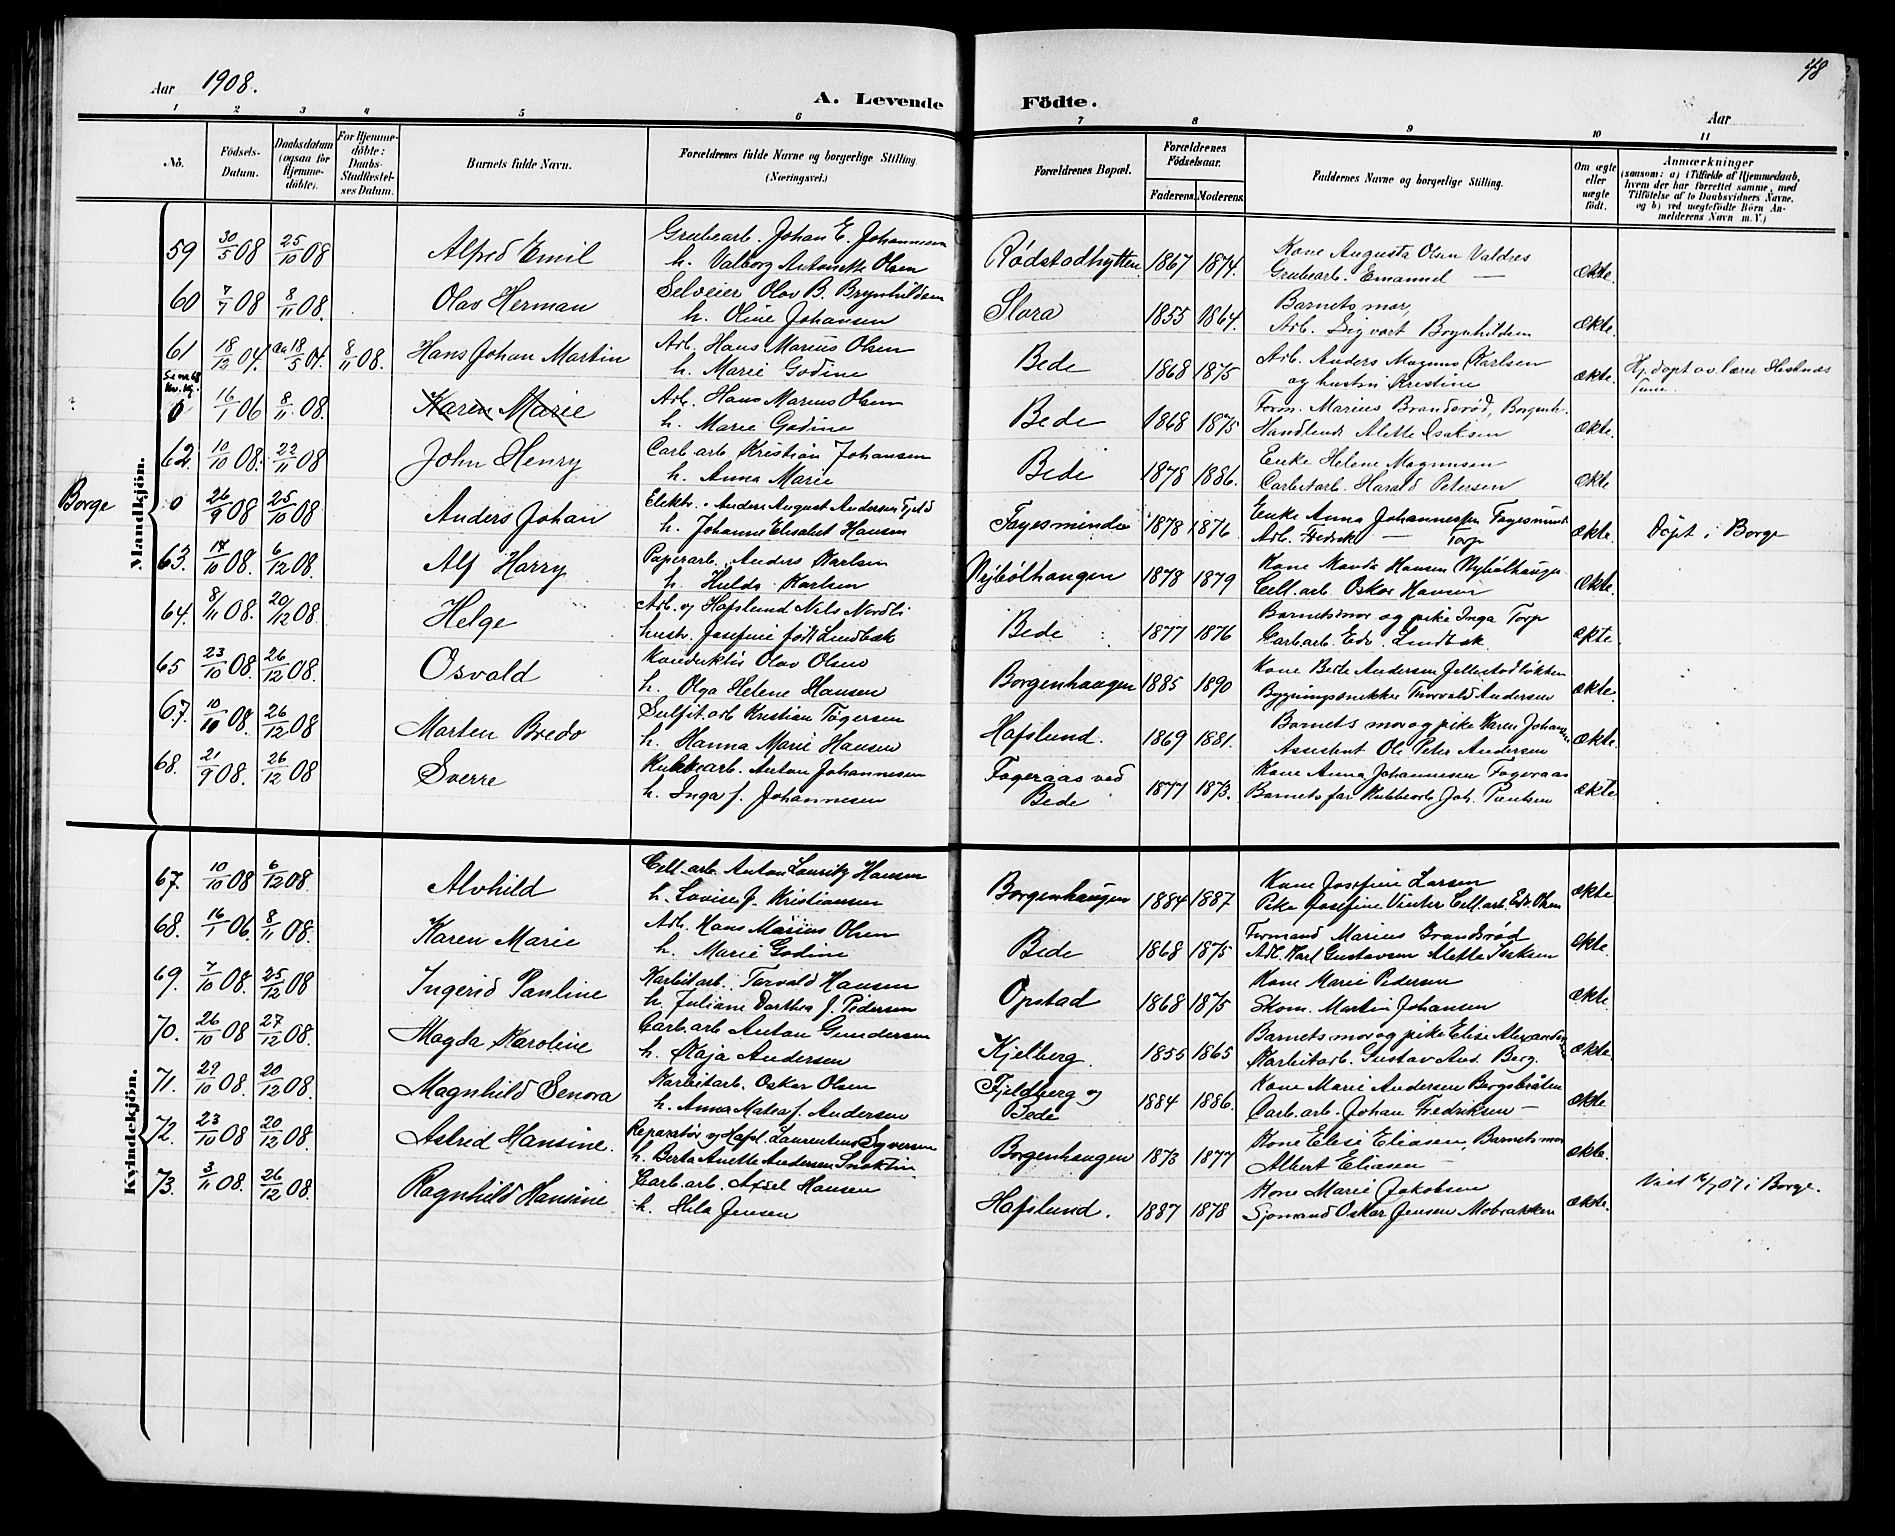 Aar 1908.
A. Levende Födte.
48
Aar
1 2 3 4 5 6 7 8 9 10 11
No.
Födsels-Datum.
Daabsdatum (ogsaa for Hjemme-döbte).
For Hjemme-döbte: Daabs-Stadfæstel-ses Datum.
Barnets fulde Navn.
Forældrenes fulde Navne og borgerlige Stilling. (Næringsvei.)
Forældrenes Bopæl.
Forældrenes Födselsaar.
Faderens. Moderens.
Faddernes Navne og borgerlige Stilling.
Om ægte eller uægte födt.
Anmærkninger
(saasom: a) i Tilfælde af Hjemmedaab,
hvem der har forrettet samme, med
Tilföielse af to Daabsvidners Navne,
og b) ved uægtefödte Börn An-
melderens Navn m. V.)
Mandkjön.
59 30/5 08 25/10 08 Alfred Emil Grubearb. Johan E. Johannesen Rödstadhytten 1867 1874. Kone Augusta Olsen Valdres ækte.
h. Valborg Antonette Olsen Grubearb. Emanuel —
60 7/7 08 8/11 08. Olav Herman Selveier Olav B. Brynhildsen Slora 1855 1864. Barnets mor, ækte.
h. Oline Johansen Arb. Sigvart Brynhildsen
61 18/12 04. 18/5 01. 8/11 08. Hans Johan Martin Arb. Hans Marius Olsen Bede 1868 1875 Arb. Anders Magnus Karlsen ækte. Hj. döpt av lærer
h. Marie Godine og hustru Kristine Tune
Se no 68
Kv. Kj.
0 16/1 06 8/11 08. Karen Marie Arb. Hans Marius Olsen Bede 1868 1875 Form. Marius Brandsröd, Borgenh. ækte.
h. Marie Godine Handlende Alette Isaksen
62. 10/10 08. 22/11 08 John Henry Carb. arb. Kristian Johansen Bede 1878 1886. Enke Helene Magnusen ækte
h. Anna Marie Carbitarb. Harald Petersen
Borge 0 26/9 08 25/10 08 Anders Johan Elektr. Anders August Andersen Fjeld Fagesminde 1878 1876 Enke Anna Johannesen Fagesmind ækte. Döpt i Borge
h. Johanne Elisabet Hansen Arb. Fredrik — Torp
63. 17/10 08. 6/12 08. Alf Harry Papirarb. Anders Karlsen Nybölhaugen 1878 1879 Kone Manda Hansen Nybölhaugen ækte.
h. Hulda Karlsen Cell. arb. Oskar Hansen
64. 8/11 08. 20/12 08. Helge Arb. v/ Hafslund Nils Nordli Bede 1877 1876 Barnets mor og pike Inga Torp ækte.
hustr. Josefine födt Lundbæk Carb. arb. Edv. Lundbæk.
65 23/10 08. 26/12 08. Osvald Konduktör Olav Olsen Borgenhaugen 1885 1890 Kone Bede Andersen Jellestadlökken ækte.
h. Olga Helene Hansen Bygningssnekker Thorvald Andersen
67. 10/10 08. 26/12 08 Morten Bredo Sulfit. arb. Kristian Tögersen Hafslund. 1869 1881. Barnets mor og pike Karen Johansen ækte.
h. Hanna Marie Hansen Assistent Ole Peter Andersen
68. 21/9 08. 26/12 08 Sverre Kubbearb. Anton Johannesen Fageraas ved Bede 1877 1873. Kone Anna Johannesen Fageraas ækte
h. Inga f. Johannesen Barnets far Kubbearb. Joh. Paulsen
Kvindekjön.
67. 10/10 08 6/12 08. Alvhild Cell. arb. Anton Lauritz Hansen Borgenhaugen 1884 1887 Kone Josefine Larsen ækte
h. Lovise f. Kristiansen Pike Josefine Vinter Cell. arb. Edv. Olsen
68. 16/1 06. 8/11 08. Karen Marie Arb. Hans Marius Olsen Bede 1868 1875 Formand Marius Brandsröd ækte.
h. Marie Godine Arb. Karl Gustavsen Alette Isaksen
69. 7/10 08. 25/12 08 Ingerid Pauline Karbitarb. Torvald Hansen Opstad 1868 1875 Kone Marie Pedersen ækte.
h. Juliane Dorthea f. Pedersen Skom. Martin Johansen
70. 26/10 08 27/12 08. Magda Karoline Carb. arb. Anton Gundersen Kjelberg. 1855 1865 Barnets mor og pike Elise Alexandersen ækte.
h. Kaja Andersen Karbitarb. Gustav And. Berg.
71. 29/10 08. 20/12 08. Magnhild Senora Karbitarb. Oskar Olsen Fjeldberg v/ Bede 1884 1886. Kone Marie Andersen Bergsbråten ækte
h. Anna Matea f. Andersen Carb. arb. Johan Fredriksen —
72. 23/10 08 20/12 08. Astrid Hansine. Reparatör v/ Hafsl. Laurentius Syversen Borgenhaugen 1873 1877 Kone Elise Eliasen, Barnets mor ækte.
h. Berta Anette Andersen Albert Eliasen —
73. 3/11 08. 26/12 08. Ragnhild Hansine Carb. arb. Axel Hansen Hafslund. 1887 1878 Kone Marie Jakobsen ækte. Viet 07 i Borge.
h. Hela Jensen Sjömand Oskar Jensen Mobrækken